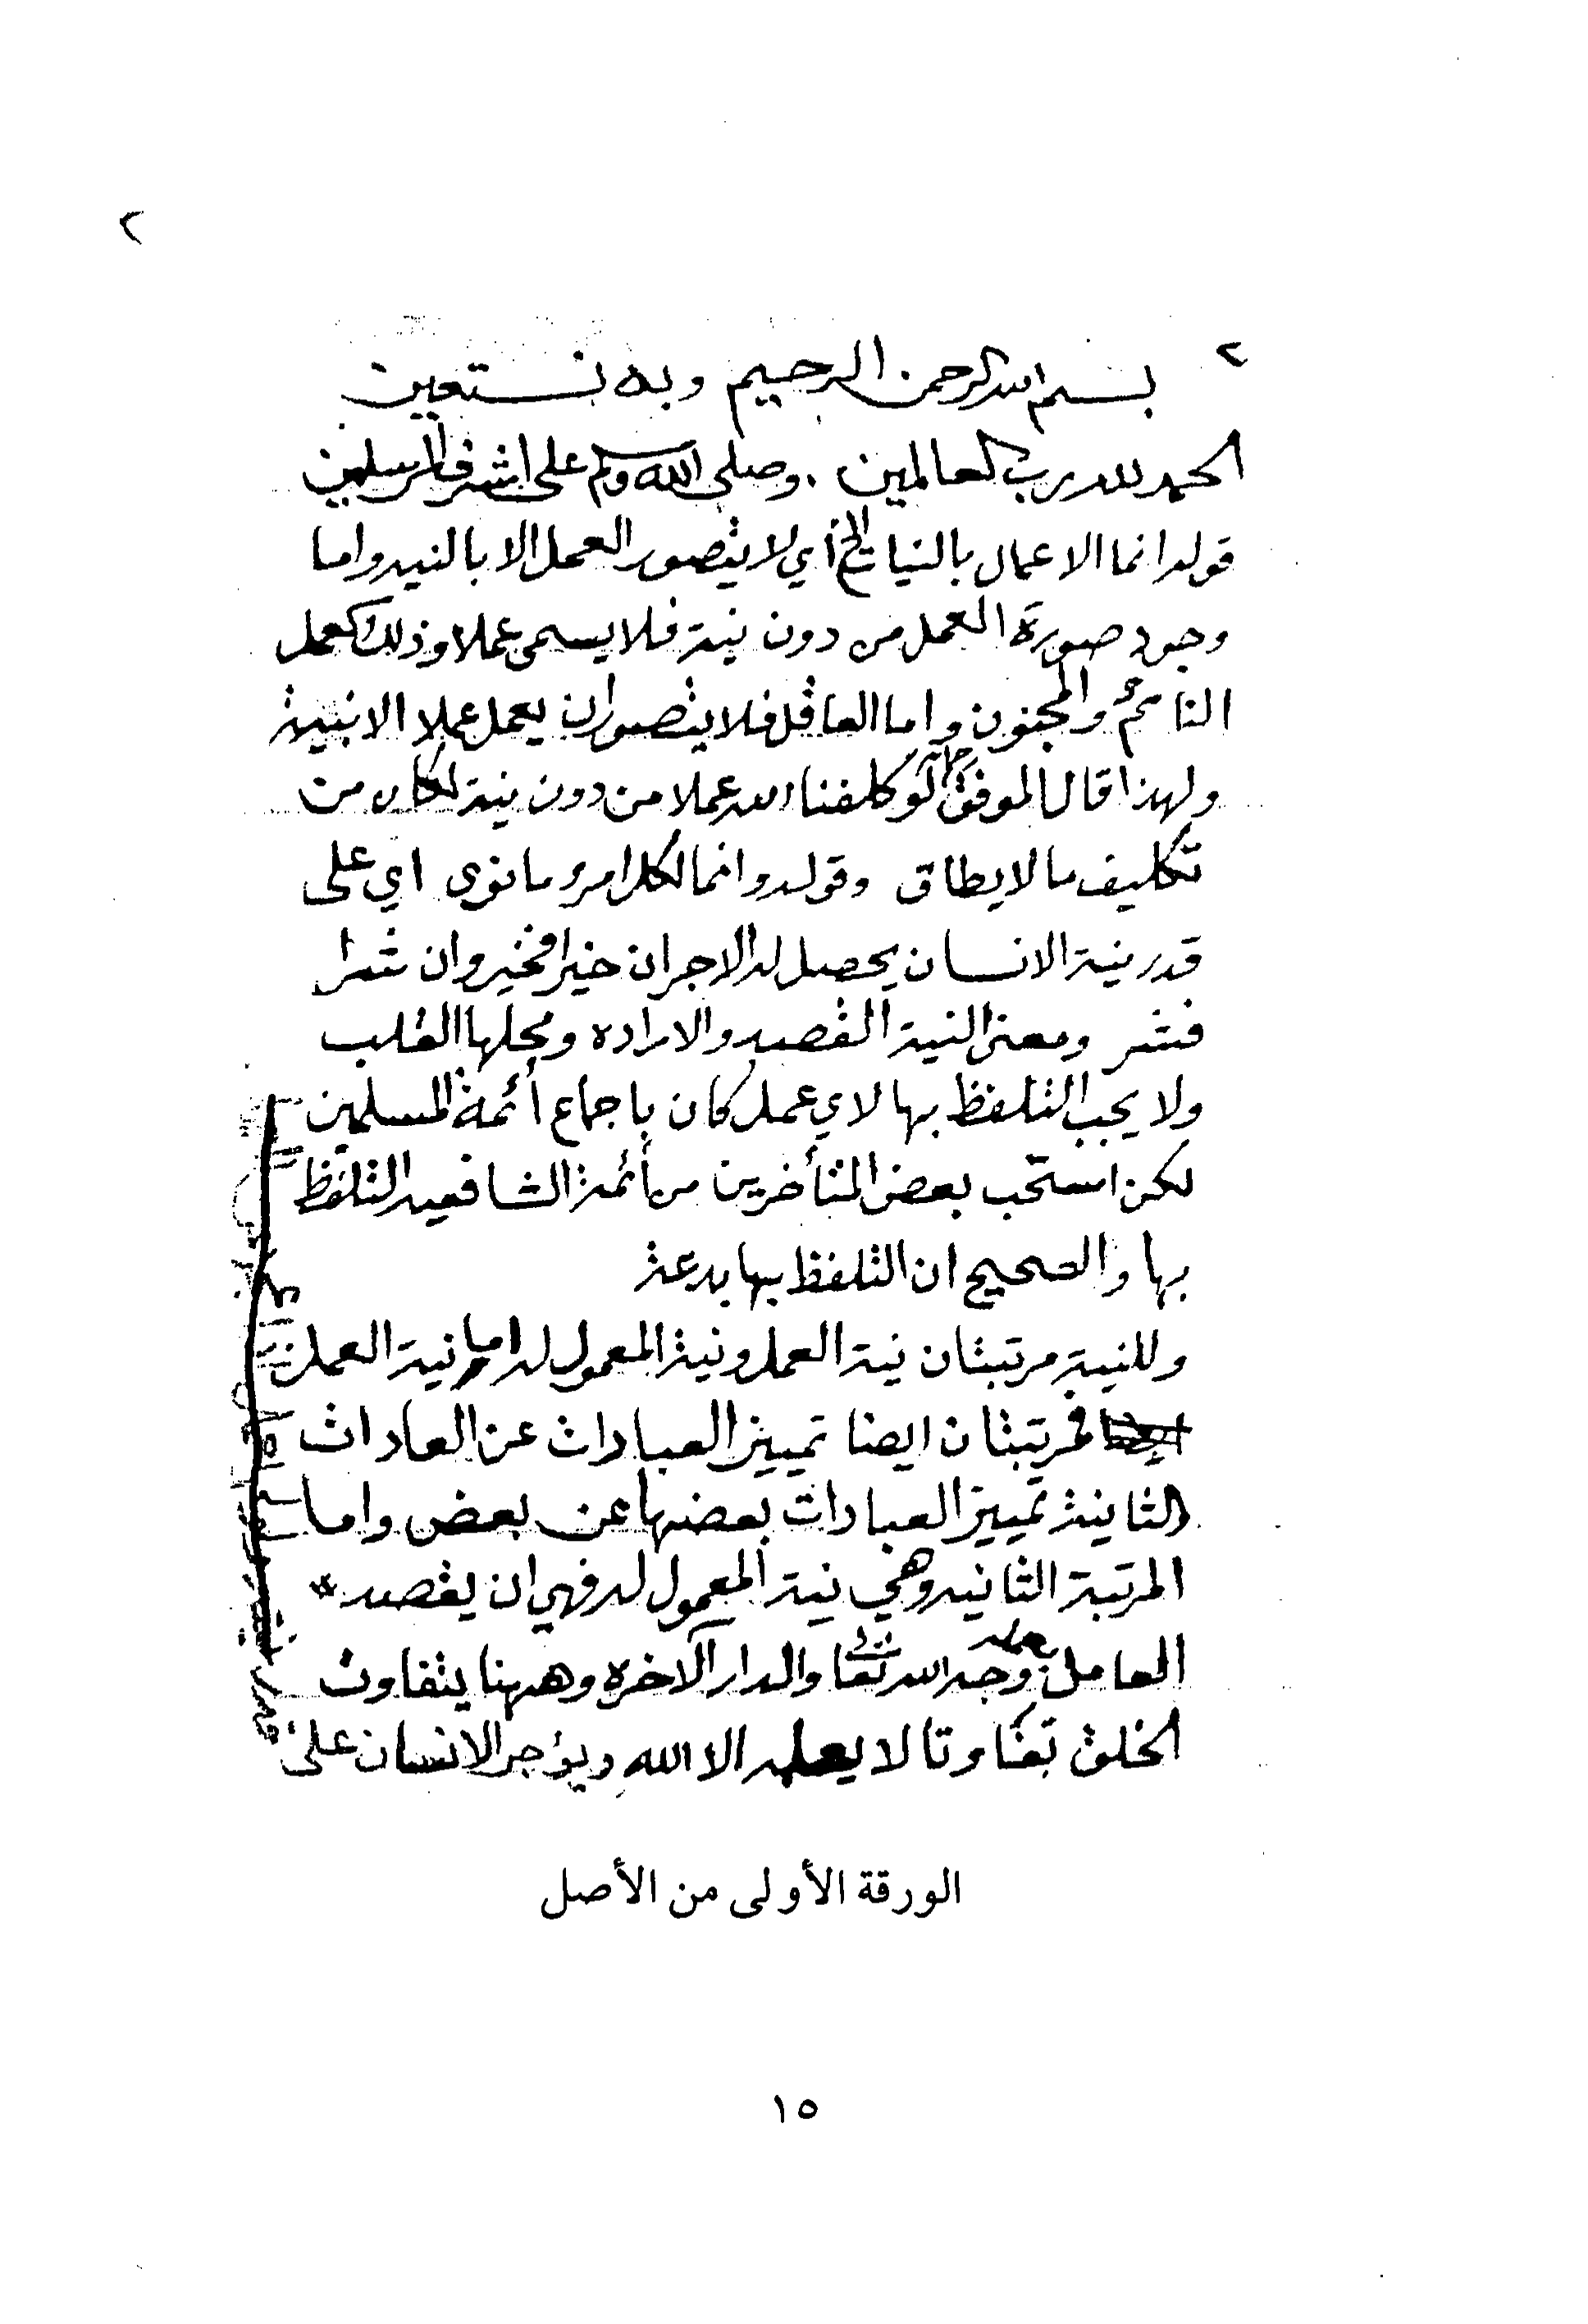 ٢
٢
بسم الله الرحمن الرحيم وبه نستعين
الحمد لله رب العالمين . وصلى الله وسلم على اشرف المرسلين
قوله انما الاعمال بالنيات الخ أي لا يتصور العمل الا بالنيه واما
وجود صورة العمل من دون نية فلا يسمى عملا وذلك كعمل
النائم والمجنون واما العاقل فلا يتصور ان يعمل عملا الا بنية
ولهذا قال الموفق لو كلفنا الله عملا من دون نية لكان من
تكليف ما لا يطاق وقوله وانما لكل امرء ما نوى اي على
قدر نية الانسان يحصل له الاجر ان خيرا فخير وان شرا
فشر ومعنى النية القصد والاراده ومحلها القلب
ولا يجب التلفظ بها لاي عمل كان باجماع أئمة المسلمين
لكن استحب بعض المتأخرين من أئمة الشافعيه التلفظ
بها والصحيح ان التلفظ بها بدعة
وللنية مرتبتان نية العمل ونية المعمول له اما نية العمل
فمرتبتان ايضا تمييز العبادات عن العادات
الثانية تمييز العبادات بعضها عن بعض واما
المرتبة الثانيه وهي نية المعمول له فهي ان يقصد
العامل بعمله وجه الله تعالى والدار الآخره وههنا يتفاوت
الخلق تفاوتا لا يعلمه الا الله ويؤجر الانسان على
الورقة الأولى من الأصل
١٥